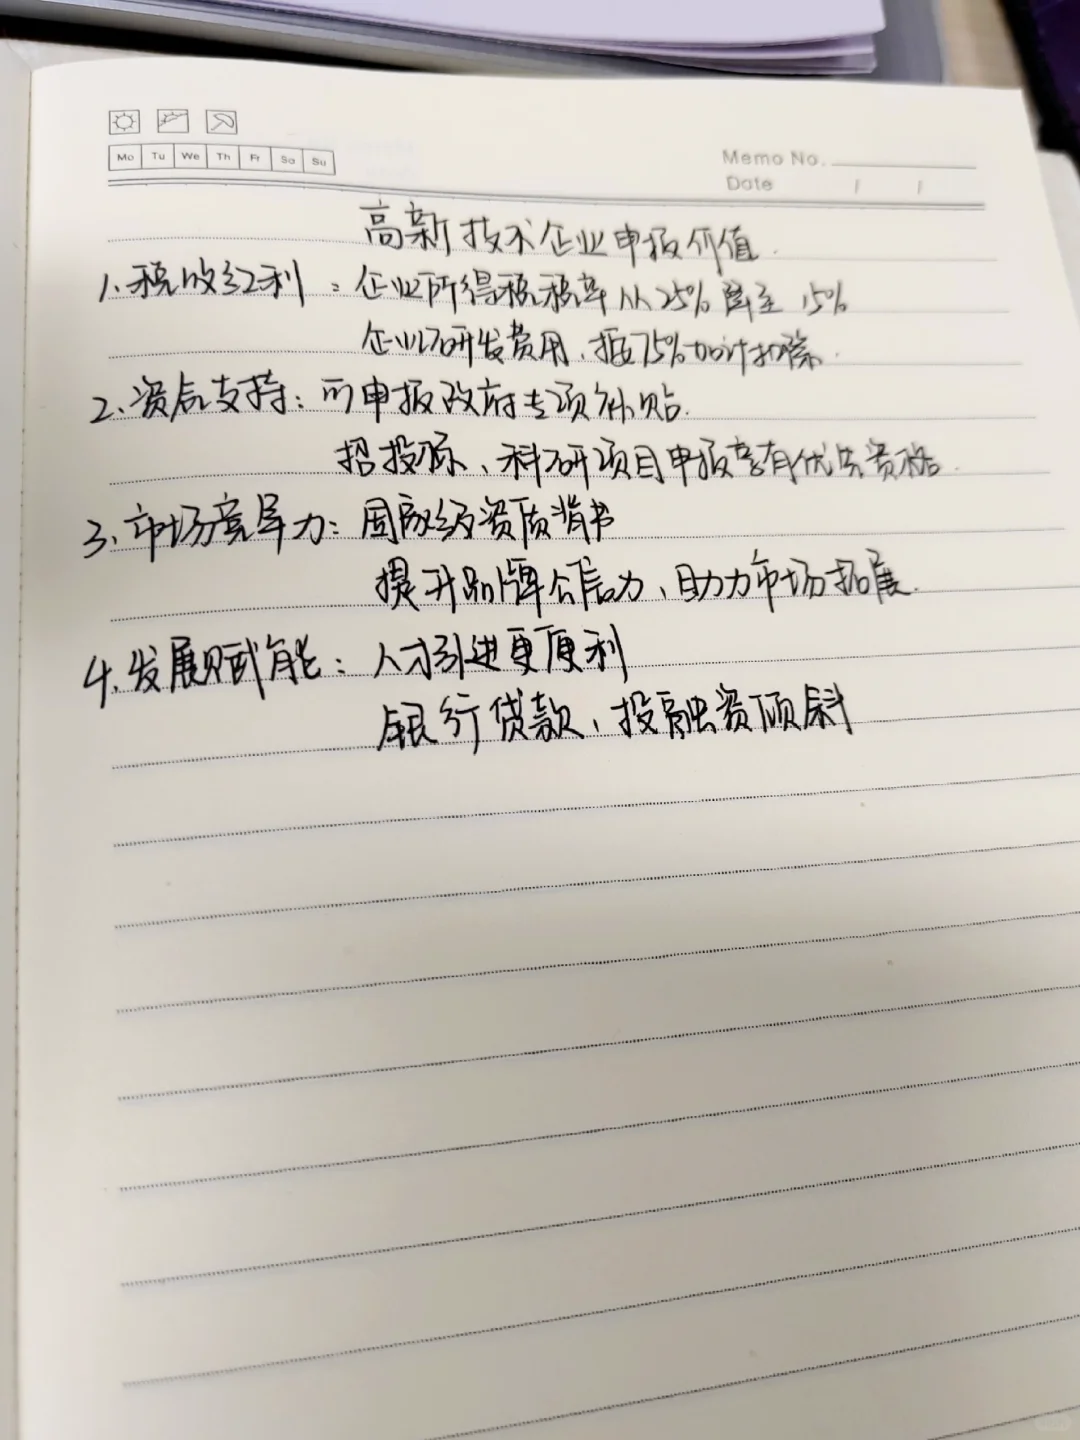 Mo Tu We Th Fr Sa Su
Memo No.
Date / /
高新技术企业申报价值
1、税收红利：企业所得税税率从25%降至15%
企业研发费用、按75%加计扣除.
2、资质支持：可申报政府专项补贴.
招投标、科研项目申报享有优先资格.
3、市场竞争力：国家级资质背书
提升品牌公信力、助力市场拓展.
4、发展赋能：人才引进更便利
银行贷款、投融资倾斜